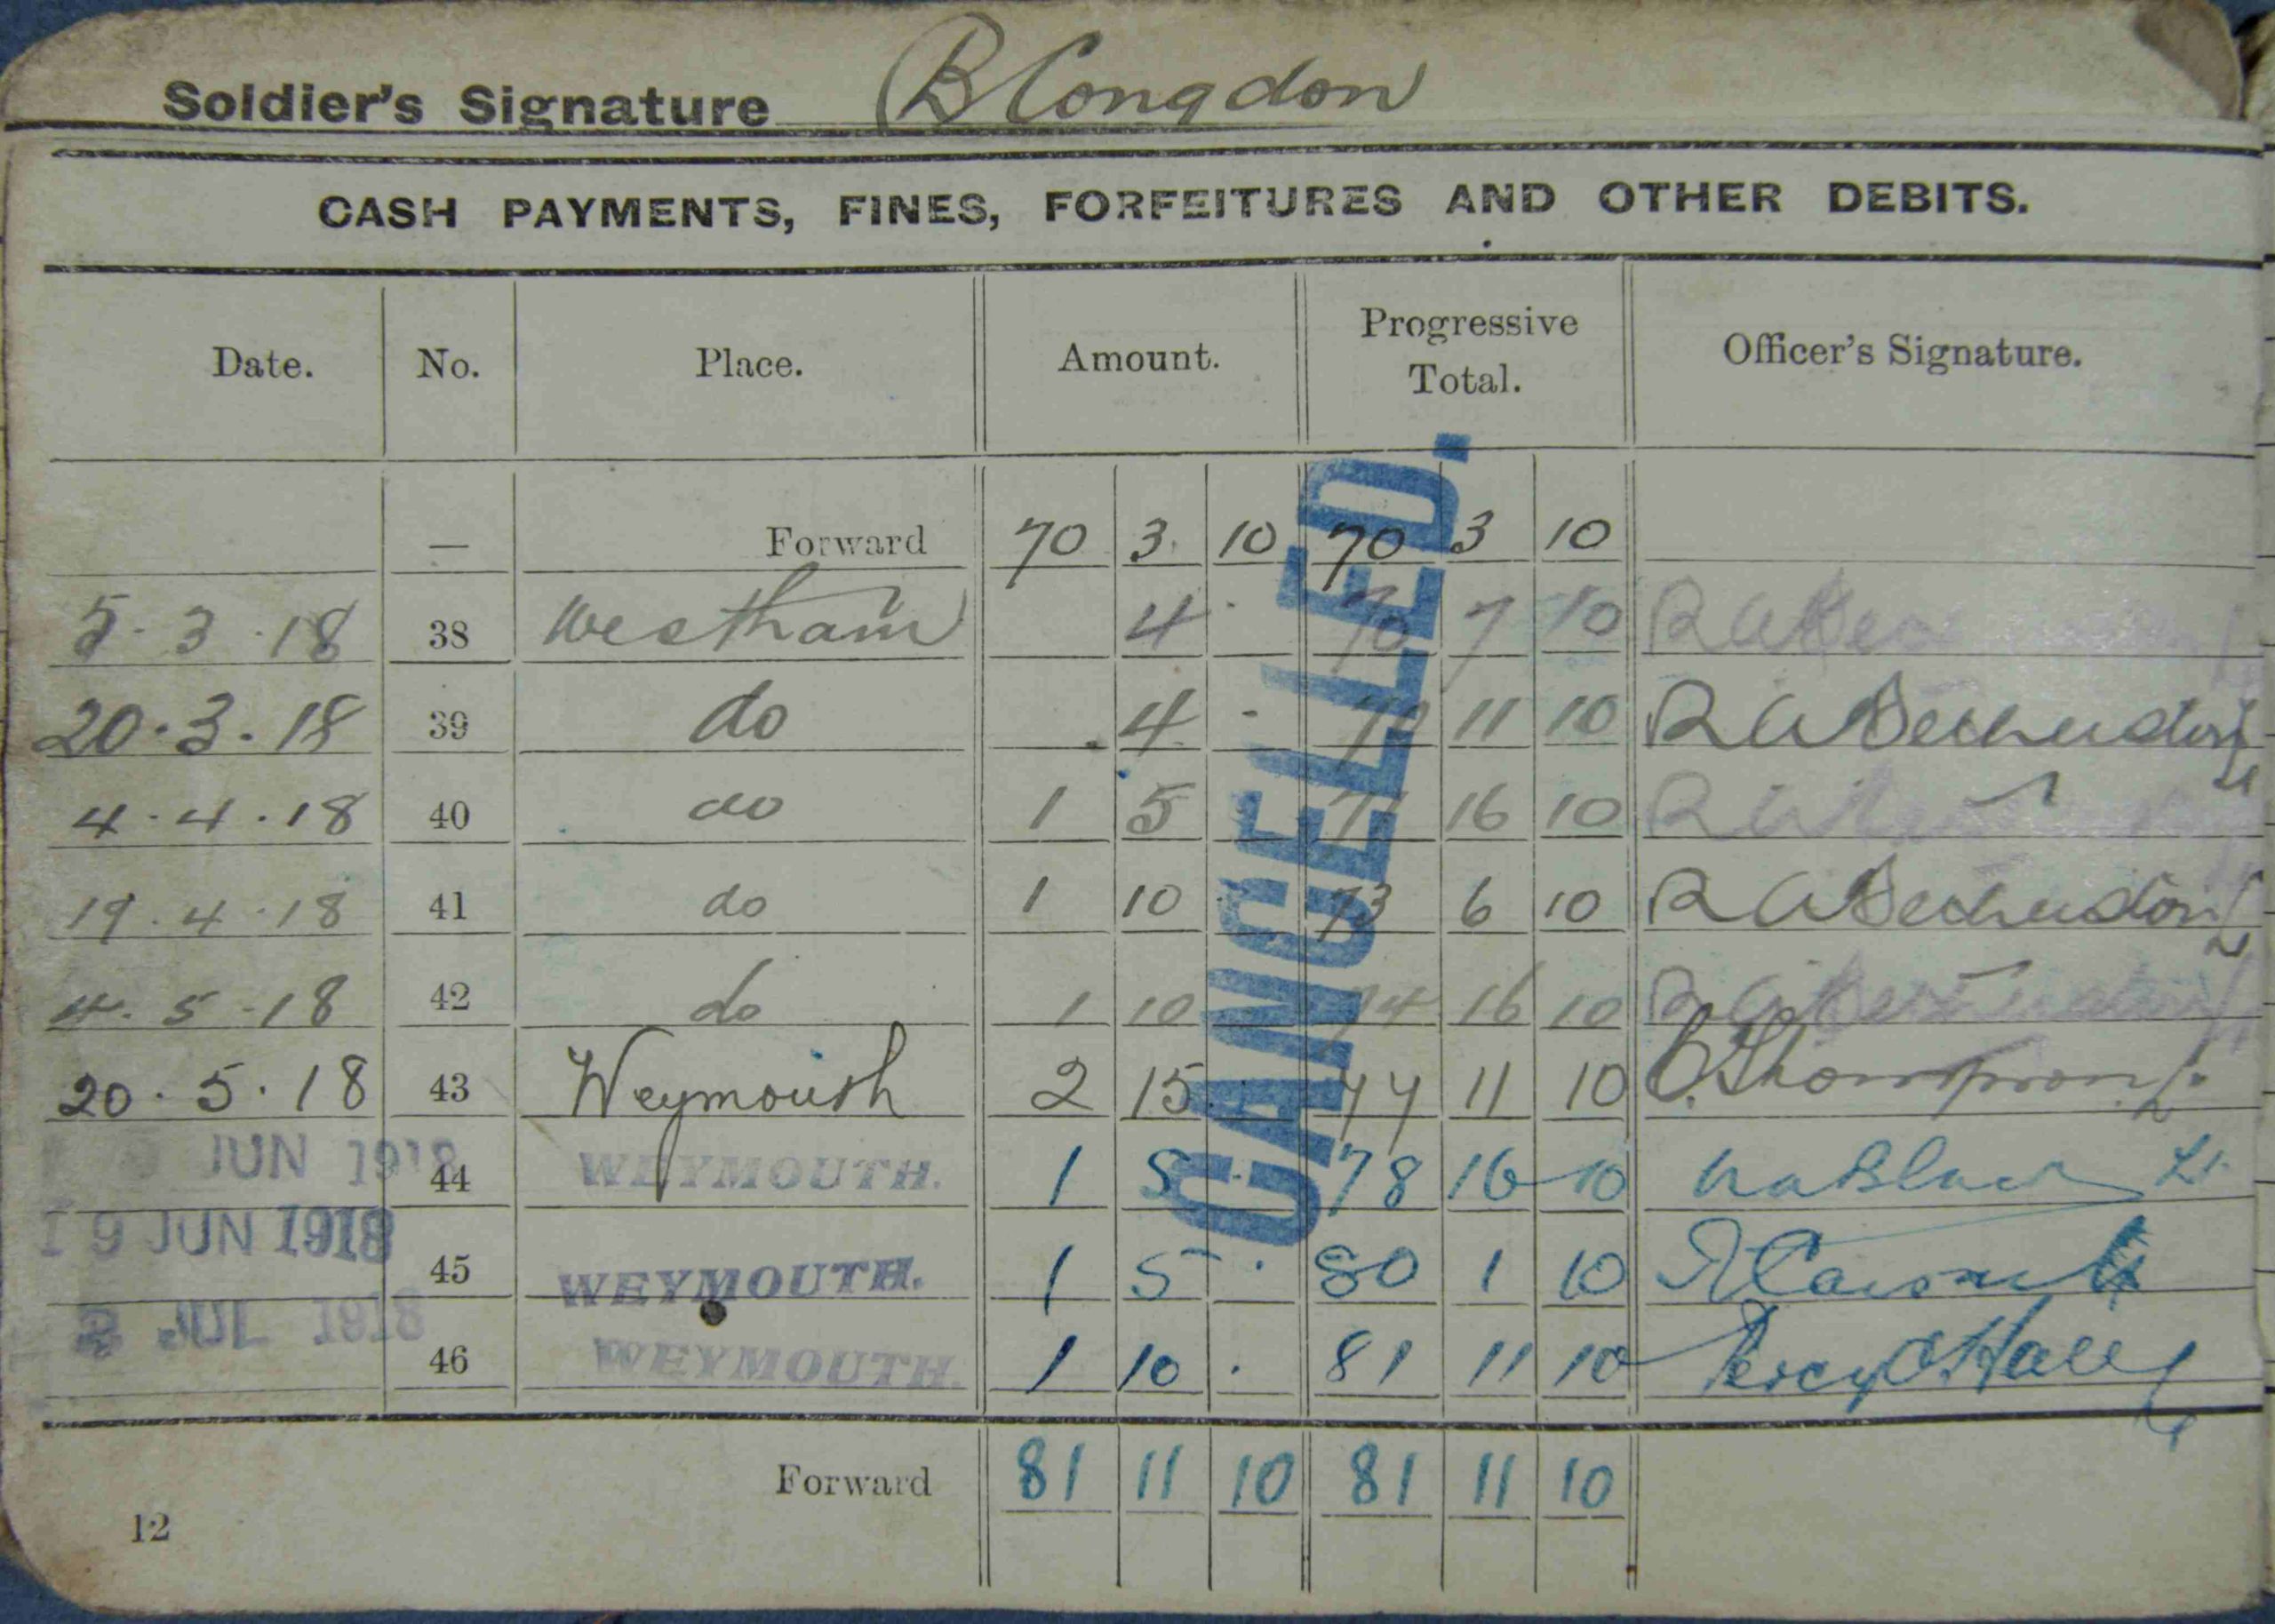 Soldier's Signature B Congdon
CASH PAYMENTS, FINES, FORFEITURES AND OTHER DEBITS.
Date. No. Place. Amount. Progressive Total. Officer's Signature.
— Forward 70 3 10 70 3 10
5.3.18 38 Westham 4 - 70 7 10 R A
20.3.18 39 do 4 - 70 11 10 R A
4.4.18 40 do 1 5 71 16 10 R
19.4.18 41 do 1 10 73 6 10 R A
4.5.18 42 do 1 10 74 16 10 R
20.5.18 43 Weymouth 2 15 77 11 10 Thompson Lt
JUN 1918 44 WEYMOUTH. 1 5 - 78 16 10 Lt
19 JUN 1918 45 WEYMOUTH. 1 5 - 80 1 10
3 JUL 1918 46 WEYMOUTH. 1 10 . 81 11 10 Percy Hall
Forward 81 11 10 81 11 10
12
CANCELLED.